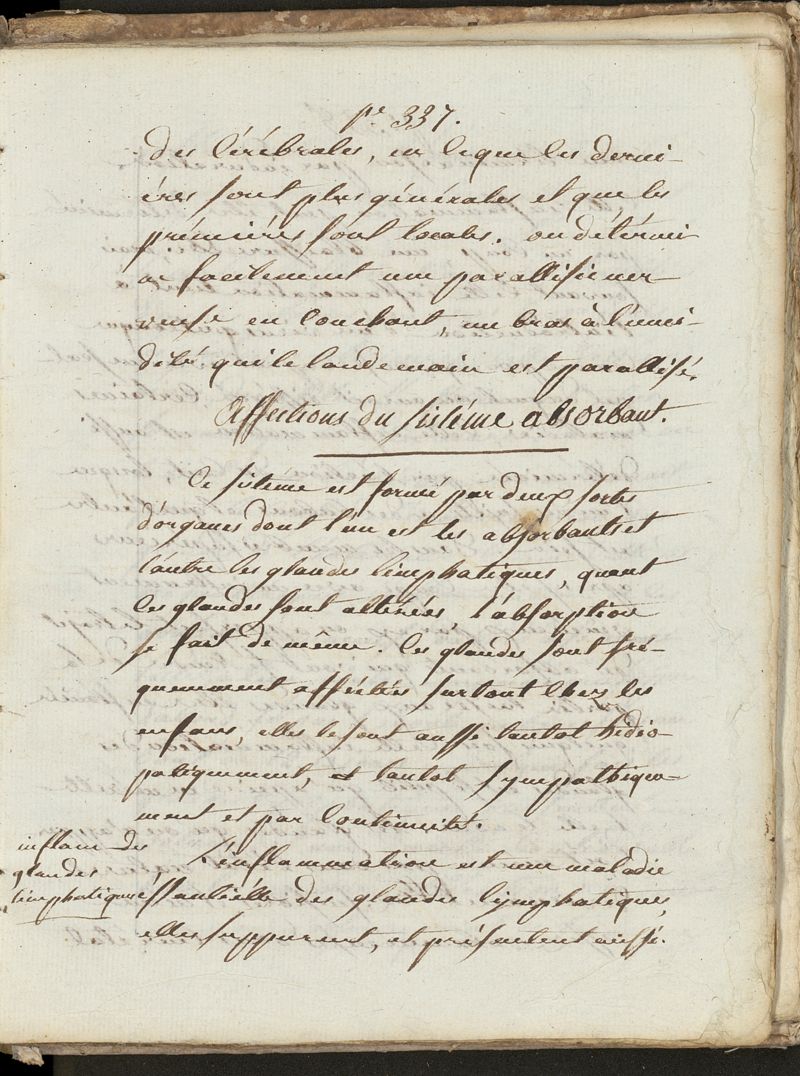 pe. 337.
des Cérébrales, en ce que les derni-
éres sont plus générales et que les
prémiéres sont locales. on détérmi
ne facilement une parallisie ner-
veuse en Couchant, un bras à l'umi-
dité qui le landemain est parallisé.
Affections du sistéme absorbant.
Ce sistéme est formé par deux sortes
d'organes dont l'un est les absorbants et
l'autre les glandes limphatiques, quant
les glandes sont altérées, l'absorption
se fait de même. les glandes sont fré-
quemment afféctées surtout chez les
enfans, elles le sont aussi tantot hidio-
patiquement, et tantot sympathique-
ment et par Continuité.
inflam des
glandes
limphatiques
L'inflammation est une maladie
éssentiélle des glandes lymphatiques,
elles suppurent, et présentent aussi.